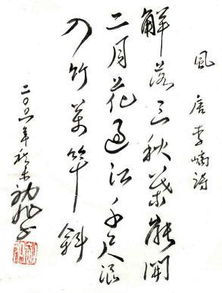 風 唐李嶠詩
解落三秋葉能開
二月花過江千尺浪
入竹萬竿斜
二〇〇六年